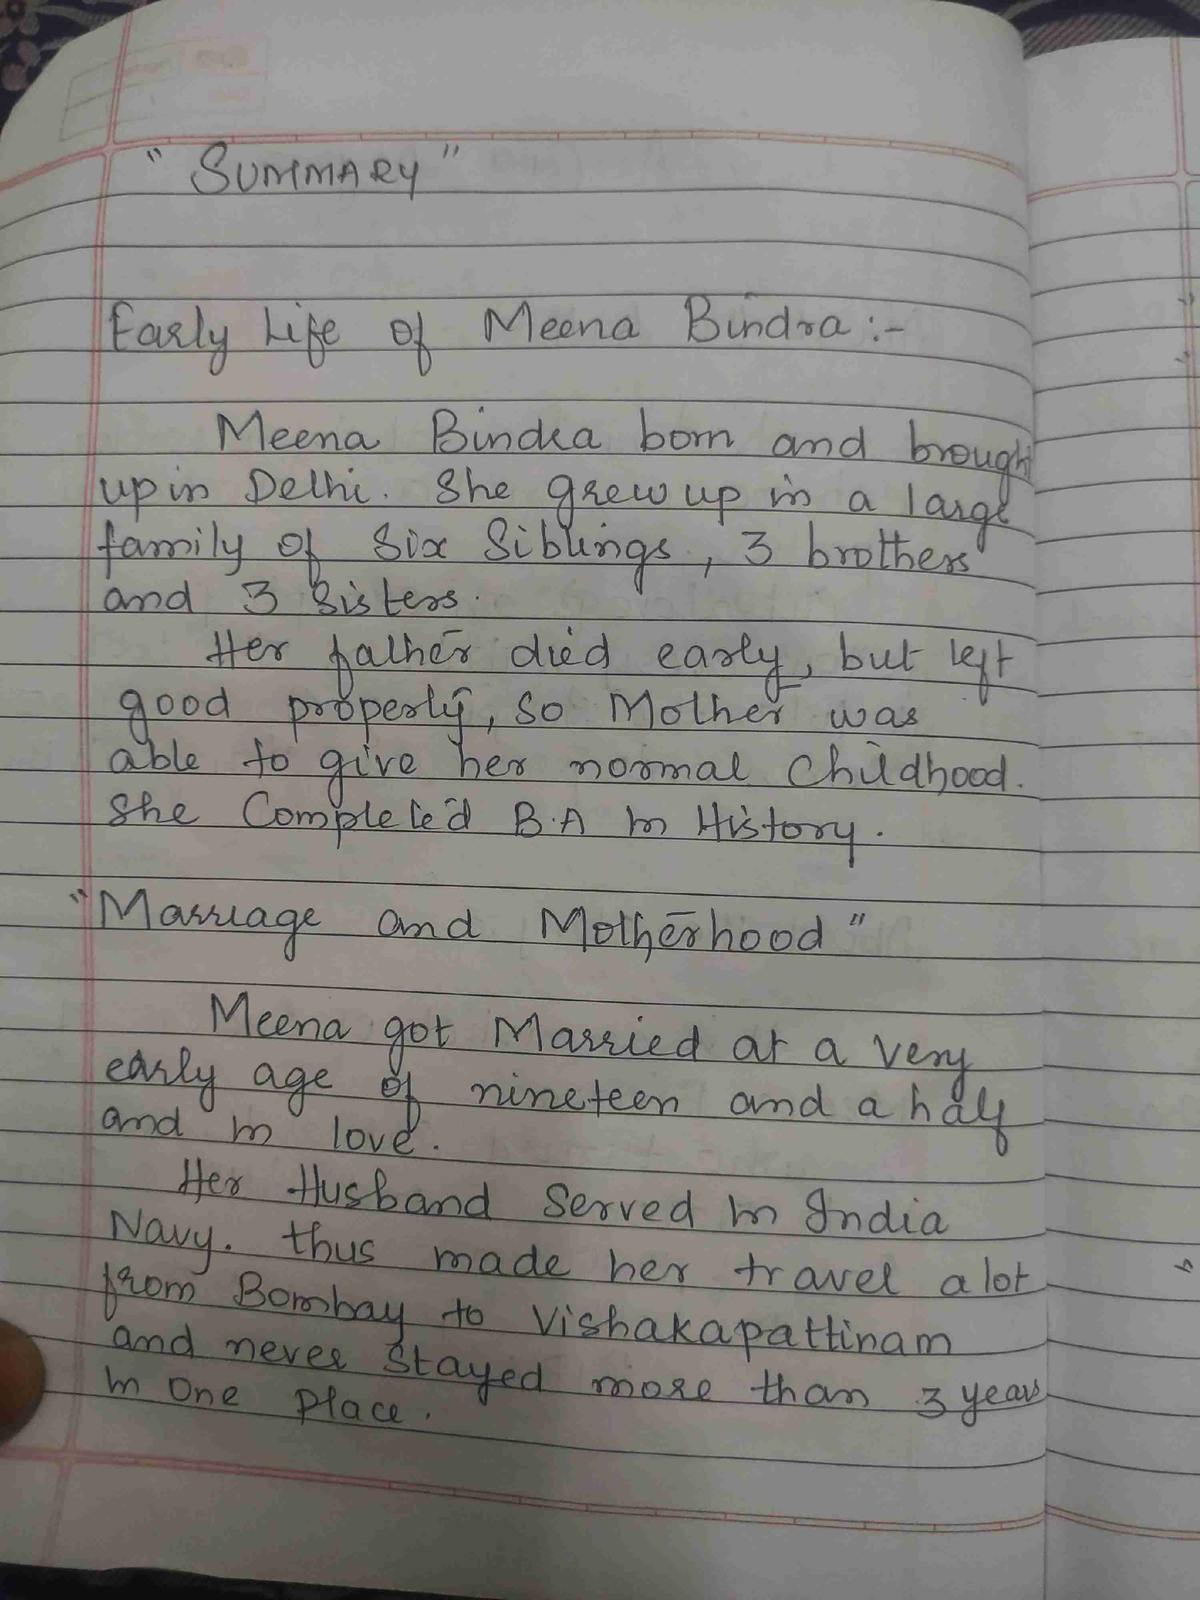 "SUMMARY"
Early Life of Meena Bindra :-
Meena Bindra born and brought
up in Delhi. She grew up in a large
family of Six Siblings, 3 brothers
and 3 Sisters.
Her father died early, but left
good property, so Mother was
able to give her normal childhood.
She Completed B.A in History.
"Marriage and Motherhood"
Meena got Married at a very
early age of nineteen and a half
and in love.
Her Husband Served in India
Navy. thus made her travel a lot
from Bombay to Vishakapattinam
and never Stayed more than 3 years
in One Place.